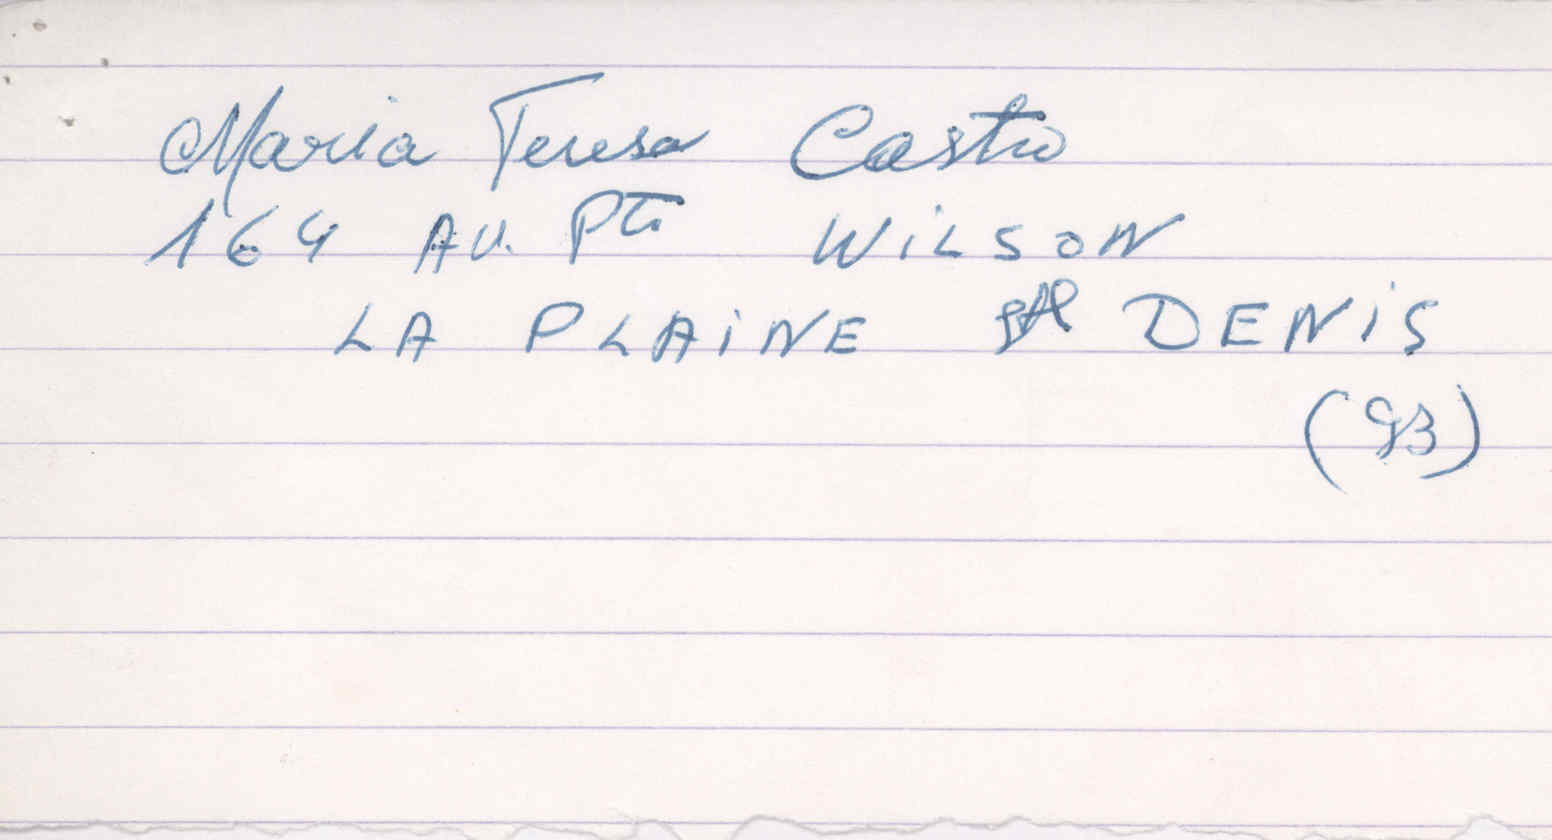 Maria Teresa Castro
164 AV. Pt WILSON
LA PLAINE St DENIS
(93)